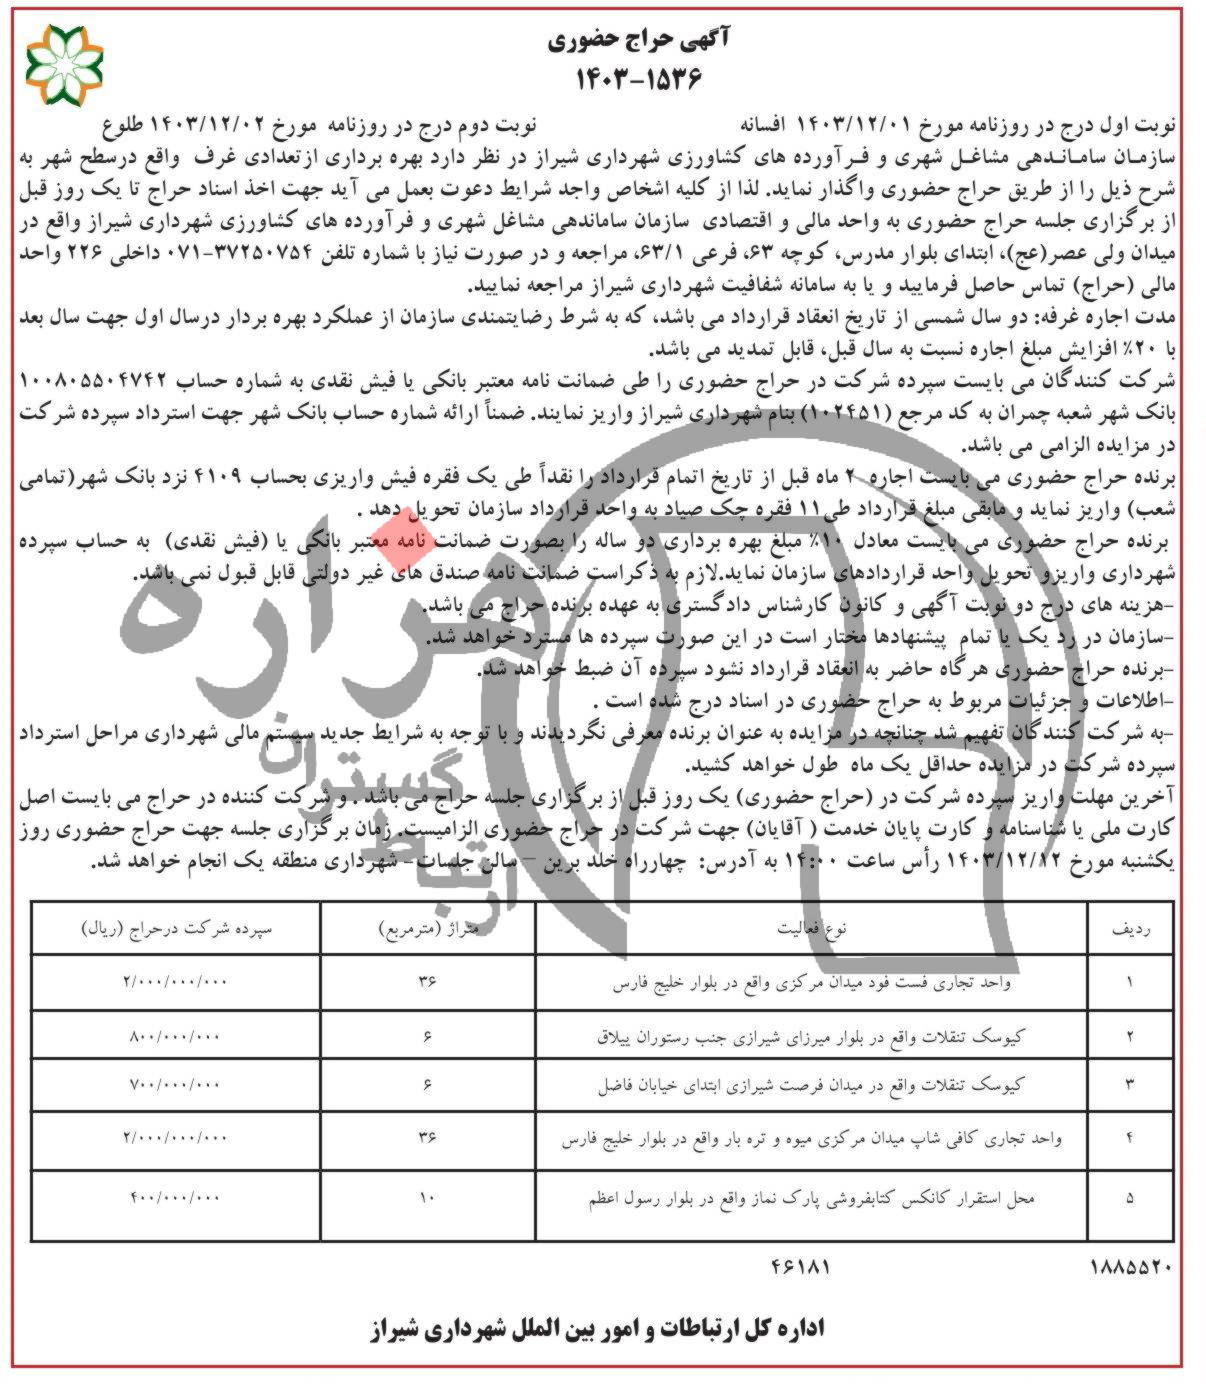 آگهی حراج حضوری
۱۴۰۳-۱۵۳۶
نوبت اول درج در روزنامه مورخ ۱۴۰۳/۱۲/۰۱ افسانه نوبت دوم درج در روزنامه مورخ ۱۴۰۳/۱۲/۰۲ طلوع
سازمـان سامانـدهی مشاغـل شهری و فـرآورده های کشاورزی شهرداری شیراز در نظر دارد بهره برداری ازتعدادی غرف واقع درسطح شهر به
شرح ذیل را از طریق حراج حضوری واگذار نماید. لذا از کلیه اشخاص واجد شرایط دعوت بعمل می آید جهت اخذ اسناد حراج تا یک روز قبل
از برگزاری جلسه حراج حضوری به واحد مالی و اقتصادی سازمان ساماندهی مشاغل شهری و فرآورده های کشاورزی شهرداری شیراز واقع در
میدان ولی عصر(عج)، ابتدای بلوار مدرس، کوچه ۶۳، فرعی ۶۳/۱، مراجعه و در صورت نیاز با شماره تلفن ۳۷۲۵۰۷۵۴-۰۷۱ داخلی ۲۲۶ واحد
مالی (حراج) تماس حاصل فرمایید و یا به سامانه شفافیت شهرداری شیراز مراجعه نمایید.
مدت اجاره غرفه: دو سال شمسی از تاریخ انعقاد قرارداد می باشد، که به شرط رضایتمندی سازمان از عملکرد بهره بردار درسال اول جهت سال بعد
با ۲۰٪ افزایش مبلغ اجاره نسبت به سال قبل، قابل تمدید می باشد.
شرکت کنندگان می بایست سپرده شرکت در حراج حضوری را طی ضمانت نامه معتبر بانکی یا فیش نقدی به شماره حساب ۱۰۰۸۰۵۵۰۴۷۴۲
بانک شهر شعبه چمران به کد مرجع (۱۰۲۴۵۱) بنام شهرداری شیراز واریز نمایند. ضمناً ارائه شماره حساب بانک شهر جهت استرداد سپرده شرکت
در مزایده الزامی می باشد.
برنده حراج حضوری می بایست اجاره ۲ ماه قبل از تاریخ اتمام قرارداد را نقداً طی یک فقره فیش واریزی بحساب ۴۱۰۹ نزد بانک شهر(تمامی
شعب) واریز نماید و مابقی مبلغ قرارداد طی۱۱ فقره چک صیاد به واحد قرارداد سازمان تحویل دهد .
برنده حراج حضوری می بایست معادل ۱۰٪ مبلغ بهره برداری دو ساله را بصورت ضمانت نامه معتبر بانکی یا (فیش نقدی) به حساب سپرده
شهرداری واریزو تحویل واحد قراردادهای سازمان نماید.لازم به ذکراست ضمانت نامه صندق های غیر دولتی قابل قبول نمی باشد.
-هزینه های درج دو نوبت آگهی و کانون کارشناس دادگستری به عهده برنده حراج می باشد.
-سازمان در رد یک یا تمام پیشنهادها مختار است در این صورت سپرده ها مسترد خواهد شد.
-برنده حراج حضوری هرگاه حاضر به انعقاد قرارداد نشود سپرده آن ضبط خواهد شد.
-اطلاعات و جزئیات مربوط به حراج حضوری در اسناد درج شده است .
-به شرکت کنندگان تفهیم شد چنانچه در مزایده به عنوان برنده معرفی نگردیدند و با توجه به شرایط جدید سیستم مالی شهرداری مراحل استرداد
سپرده شرکت در مزایده حداقل یک ماه طول خواهد کشید.
آخرین مهلت واریز سپرده شرکت در (حراج حضوری) یک روز قبل از برگزاری جلسه حراج می باشد . و شرکت کننده در حراج می بایست اصل
کارت ملی یا شناسنامه و کارت پایان خدمت ( آقایان) جهت شرکت در حراج حضوری الزامیست. زمان برگزاری جلسه جهت حراج حضوری روز
یکشنبه مورخ ۱۴۰۳/۱۲/۱۲ رأس ساعت ۱۴:۰۰ به آدرس: چهارراه خلد برین – سالن جلسات- شهرداری منطقه یک انجام خواهد شد.
ردیف نوع فعالیت متراژ (مترمربع) سپرده شرکت درحراج (ریال)
۱ واحد تجاری فست فود میدان مرکزی واقع در بلوار خلیج فارس ۳۶ ۲/۰۰۰/۰۰۰/۰۰۰
۲ کیوسک تنقلات واقع در بلوار میرزای شیرازی جنب رستوران ییلاق ۶ ۸۰۰/۰۰۰/۰۰۰
۳ کیوسک تنقلات واقع در میدان فرصت شیرازی ابتدای خیابان فاضل ۶ ۷۰۰/۰۰۰/۰۰۰
۴ واحد تجاری کافی شاپ میدان مرکزی میوه و تره بار واقع در بلوار خلیج فارس ۳۶ ۲/۰۰۰/۰۰۰/۰۰۰
۵ محل استقرار کانکس کتابفروشی پارک نماز واقع در بلوار رسول اعظم ۱۰ ۴۰۰/۰۰۰/۰۰۰
۱۸۸۵۵۲۰ ۴۶۱۸۱
اداره کل ارتباطات و امور بین الملل شهرداری شیراز
هزاره
گستران
ارتباط